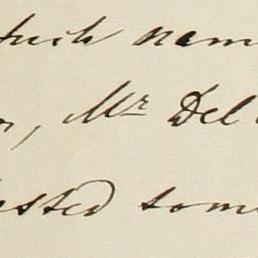 which nam
n, Mr Del
ested some